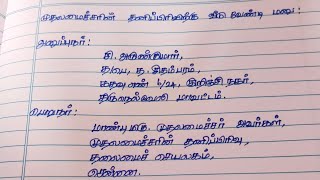 முதலமைச்சரின் தனிப்பிரிவிற்கு வீடு வேண்டி மனு:
அனுப்புநர்:
சி. அருண்குமார்,
த/பெ, த. சிதம்பரம்,
கதவு எண் 6/24, குறிஞ்சி நகர்,
திருநெல்வேலி மாவட்டம்.
பெறுநர்:
மாண்புமிகு. முதலமைச்சர் அவர்கள்,
முதலமைச்சரின் தனிப்பிரிவு,
தலைமைச் செயலகம்,
சென்னை.